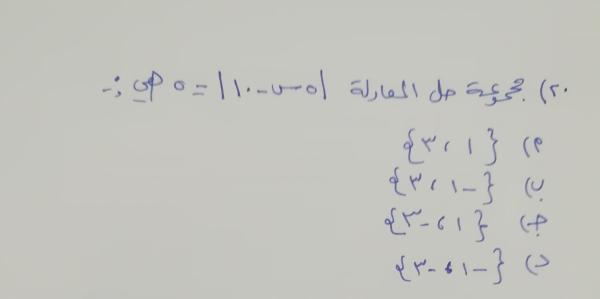 ٢٠) مجموعة حل المعادلة |٥س-١٠| = ٥ هي :-
أ) {١ ، ٣}
ب) {-١ ، ٣}
ج) {١ ، -٣}
د) {-١ ، -٣}